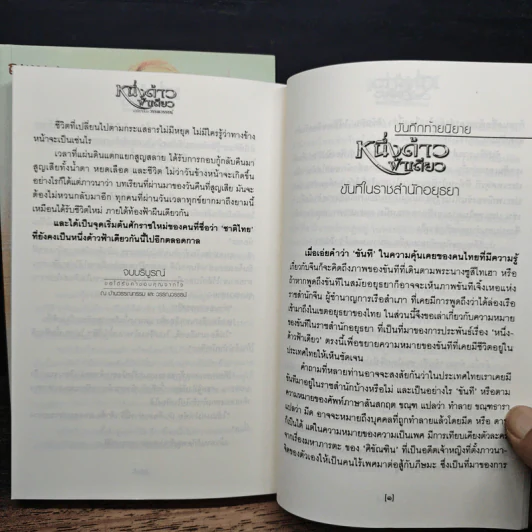 หนึ่งด้าวฟ้าเดียว
ชีวิตที่เปลี่ยนไปตามกระแสธารไม่มีหยุด ไม่มีใครรู้ว่าทางข้าง
หน้าจะเป็นเช่นไร
เวลาที่แผ่นดินแตกแยกสูญสลาย ได้รับการกอบกู้กลับคืนมา
สูญเสียทั้งน้ำตา หยดเลือด และชีวิต ไม่ว่าวันข้างหน้าจะเกิดขึ้น
อย่างไรก็ได้แต่ภาวนาว่า บทเรียนที่ผ่านมาของวันคืนที่สูญเสีย มันจะ
ต้องไม่หวนกลับมาอีก ทุกคนที่ผ่านวันเวลาทุกข์ยากมาถึงยามนี้
เหมือนได้รับชีวิตใหม่ ภายใต้ท้องฟ้าผืนเดียวกัน
และได้เป็นจุดเริ่มต้นศักราชใหม่ของคนที่ชื่อว่า ‘ชาติไทย’
ที่ยังคงเป็นหนึ่งด้าวฟ้าเดียวกันนี้ไปอีกตลอดกาล
จบบริบูรณ์
ณ บ้านวรรณกรรม และ วรรณวรรธน์
บันทึกท้ายนิยาย
หนึ่งด้าวฟ้าเดียว
ขันทีในราชสำนักอยุธยา
เมื่อเอ่ยคำว่า ‘ขันที’ ในความคุ้นเคยของคนไทยที่มีความรู้
เกี่ยวกับจีนก็จะคิดถึงภาพของขันทีที่เดินตามพระนางซูสีไทเฮา หรือ
ถ้าหากพูดถึงขันทีในสมัยอยุธยาก็อาจจะเห็นภาพขันทีเจิ้งเหอแห่ง
ราชสำนักจีน ผู้ชำนาญการเรือสำเภา ที่เคยมีการพูดถึงว่าได้ล่องเรือ
เข้ามาถึงในเขตอยุธยาของไทย ในส่วนนี้จึงขอเล่าเกี่ยวกับความหมาย
ของขันทีในราชสำนักอยุธยา ที่เป็นที่มาของการประพันธ์เรื่อง ‘หนึ่ง-
ด้าวฟ้าเดียว’ ตรงนี้เพื่อขยายความหมายของขันทีที่เคยมีชีวิตอยู่ใน
ประเทศไทยให้เห็นชัดเจน
คำถามที่หลายท่านอาจจะสงสัยก็ว่าในประเทศไทยเราเคยมี
ขันทีมาอยู่ในราชสำนักบ้างหรือไม่ และเป็นอย่างไร ‘ขันที’ หรือตาม
ความหมายของศัพท์ภาษาสันสกฤต ขณฺฑ แปลว่า ทำลาย ขณฺฑธารา
แปลว่า มีด อาจจะหมายถึงบุคคลที่ถูกทำลายแล้วโดยมีด หรือ
ก็เป็นได้ แต่ในความหมายของความเป็นเพศ มีการเทียบเคียงตัวละคร
จากเรื่องมหาภารตะ ของ ‘ศิขัณฑิน’ ที่เป็นอดีตเจ้าหญิงที่ตั้งภาวนา-
จิตของตัวเองให้เป็นคนไร้เพศมาต่อสู้กับภีษมะ ซึ่งเป็นที่มาของการ
[๑]